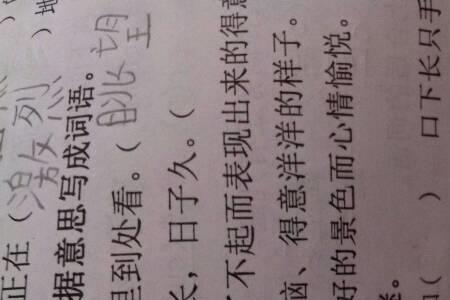 正在（激烈）地
据意思写成词语。
里到处看。（眺望
长，日子久。（
了不起而表现出来的得意
脑、得意洋洋的样子。
好的景色而心情愉悦。
（ ） 口下长只手